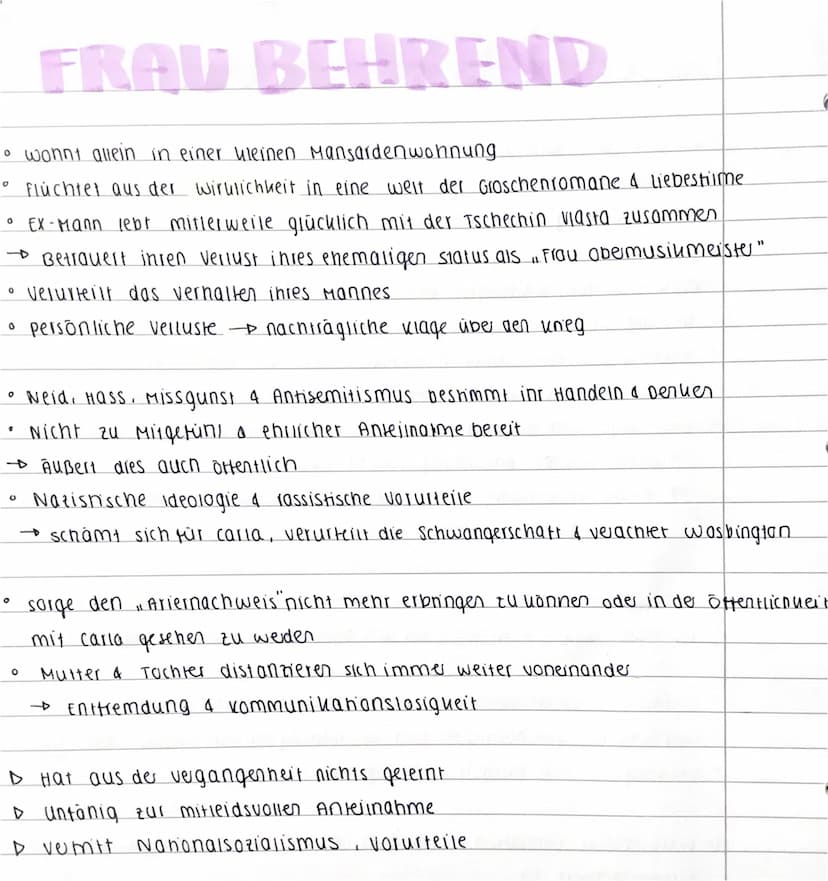 FRAU BEHREND
° wohnt allein in einer kleinen Mansardenwohnung
° flüchtet aus der Wirklichkeit in eine Welt der Groschenromane & Liebesfilme
° Ex-Mann lebt mitlerweile glücklich mit der Tschechin Vlasta zusammen
→ Betrauert ihren Verlust ihres ehemaligen Status als „Frau Obermusikmeister"
° verurteilt das Verhalten ihres Mannes
° persönliche Verluste → nachträgliche Klage über den Krieg
° Neid, Hass, Missgunst & Antisemitismus bestimmt ihr Handeln & Denken
° Nicht zu Mitgefühl & ehrlicher Anteilnahme bereit
→ Äußert dies auch öffentlich
° Nazistische Ideologie & rassistische Vorurteile
→ schämt sich für Carla, verurteilt die Schwangerschaft & verachtet Washington
° sorge den „Ariernachweis" nicht mehr erbringen zu können oder in der Öffentlichkeit
mit Carla gesehen zu werden
° Mutter & Tochter distanzieren sich immer weiter voneinander
→ Entfremdung & Kommunikationslosigkeit
▷ Hat aus der Vergangenheit nichts gelernt
▷ unfähig zur mitleidsvollen Anteinahme
▷ vertritt Nationalsozialismus, Vorurteile